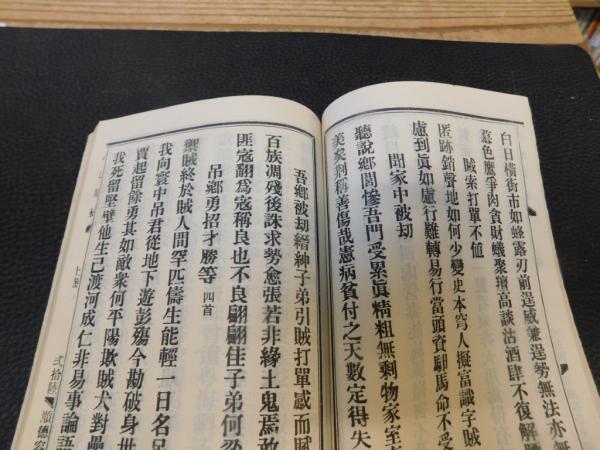 白日橫街市如蜂露刃前逞威兼逞勢無法亦無
暮色鷹爭肉貪財蟻聚壇高談沽酒肆不復解
賊索打單不値
匿跡銷聲地如何少變史本窮人擬富識字賊
慮到眞如慮行難轉易行當頭資駟馬命不受
聞家中被劫
聽說鄉閭慘吾門受累眞精粗無剩物家室
美矣荆稱善傷哉憲病貧付之天數定得失
吾鄉被劫縉紳子弟引賊打單感而賦
百族凋殘後誅求勢愈張若非緣土鬼焉敢
匪寇翻爲寇稱良也不良翩翩佳子弟何
吊鄉勇招才勝等 四首
禦賊終於賊人間罕匹儔生能輕一日名足
我向寰中吊君從地下遊彭殤今勘破身世
賈起留餘勇其如敵衆何平陽欺賊犬對壘
我死留堅壁他生己渡河成仁非易事論語
上對
弍拾陸
順德容